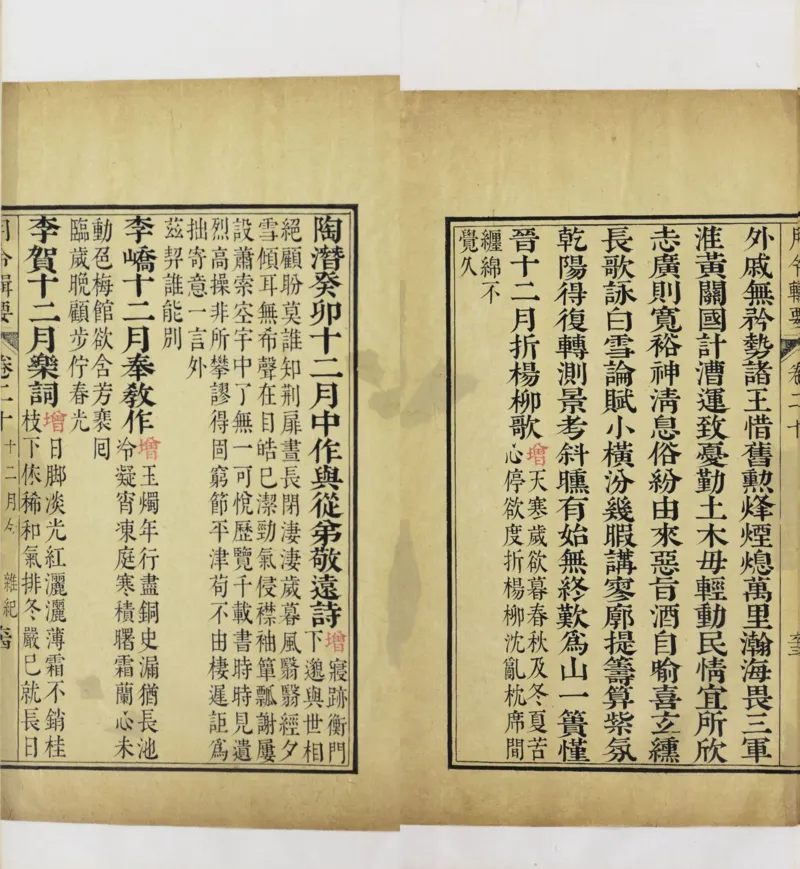 月令輯要 卷二十
外戚無矜勢諸王惜舊勲烽煙熄萬里瀚海畏三軍
淮黃關國計漕運致憂勤土木毋輕動民情宜所欣
志廣則寬裕神淸息俗紛由來惡旨酒自喻喜玄纁
長歌詠白雪論賦小橫汾幾暇講寥廓提籌算紫氛
乾陽得復轉測景考斜曛有始無終歎爲山一簣僅
晉十二月折楊柳歌 增 天寒歲欲暮春秋及冬夏苦
心停欲度折楊柳沈亂枕席間
纏綿不
覺久
陶潛癸卯十二月中作與從弟敬遠詩 增 寢跡衡門
下邈與世相
絕顧盼莫誰知荆扉晝長閉淒淒歲暮風翳翳經夕
雪傾耳無希聲在目皓已潔勁氣侵襟袖簞瓢謝屢
設蕭索空宇中了無一可悅歷覽千載書時時見遺
烈高操非所攀謬得固窮節平津苟不由棲遲詎爲
拙寄意一言外
茲契誰能别
李嶠十二月奉敎作 增 玉燭年行盡銅史漏猶長池
冷凝宵凍庭寒積曙霜蘭心未
動色梅館欲含芳裵回
臨歲晚顧步佇春光
李賀十二月樂詞 增 日脚淡光紅灑灑薄霜不銷桂
枝下依稀和氣排冬嚴已就長日
月令輯要 卷二十 十二月令 雜紀